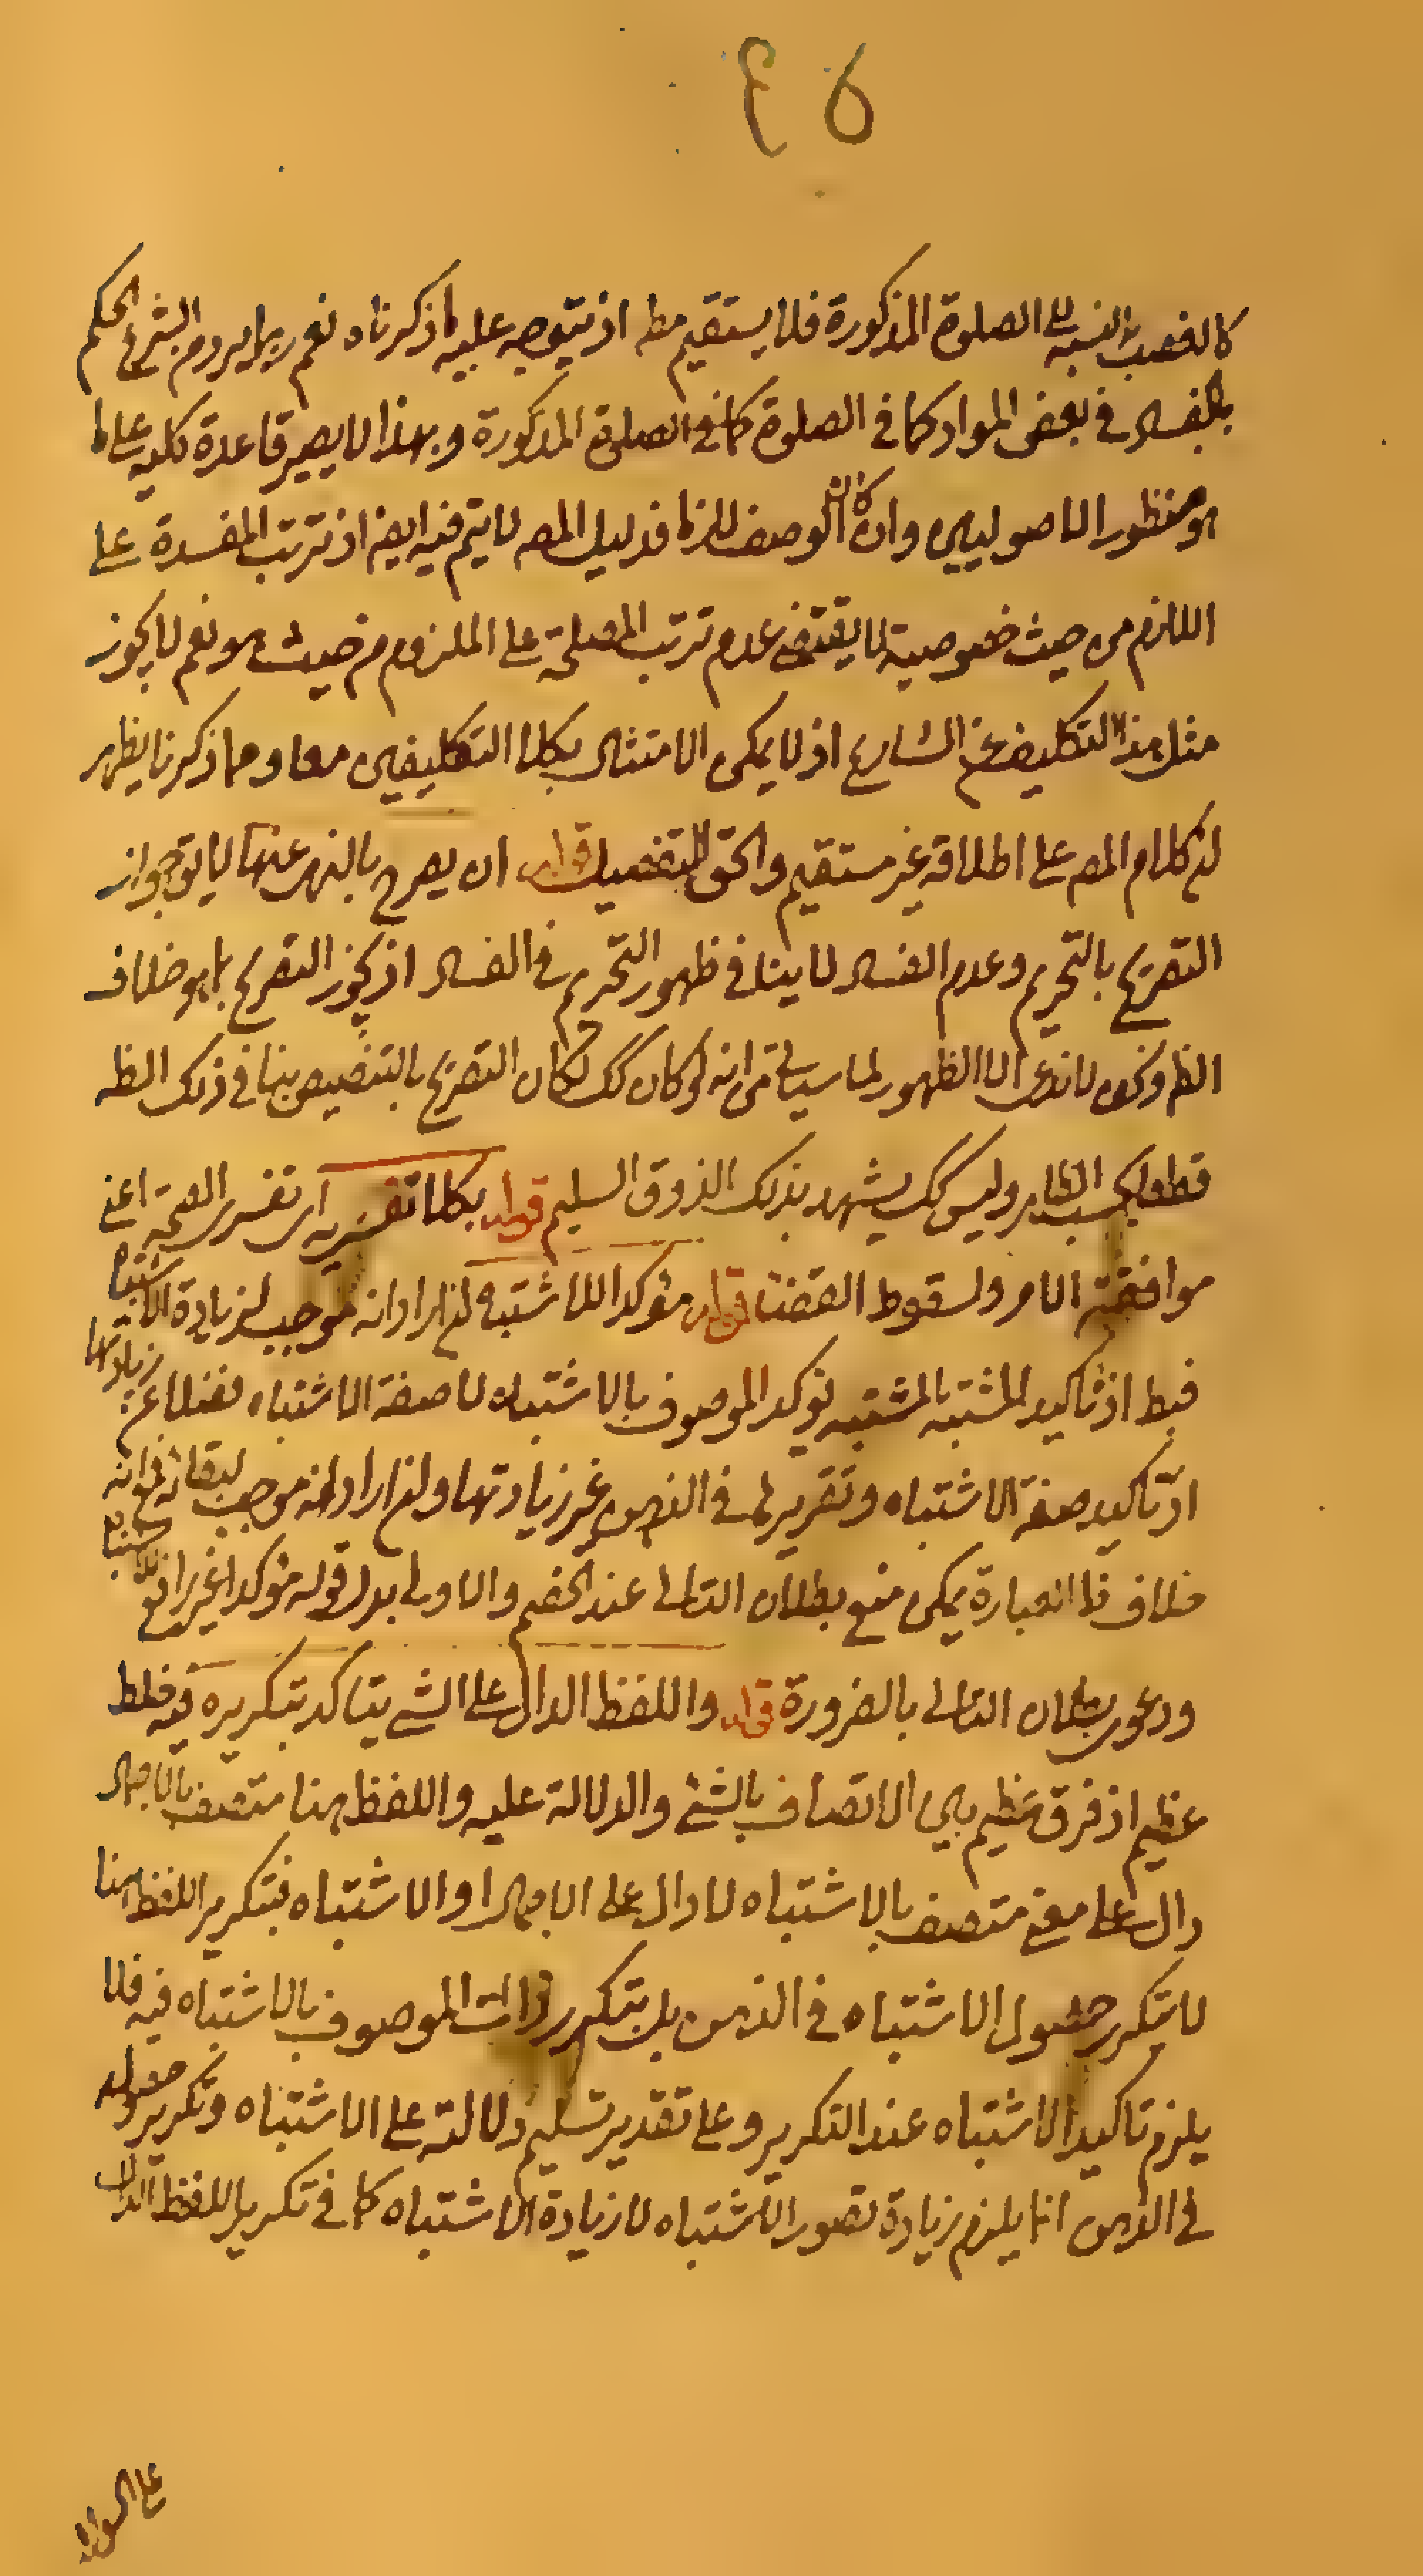 كالغصب بالنسبة الى الصلوة المذكورة فلا يستقيم مط اذ يتوجه عليه ما ذكرناه نعم ربما يروم الشرع الحكم
بالفساد في بعض المواد كما في الصلوة كما في الصلوة المذكورة وبهذا لا يصير قاعدة كلية على ما
هو منظور الاصوليين وان كان الوصف لازما فدليل المصـ لا يتم فيه ايضا اذ ترتب المفسدة على
اللازم من حيث خصوصية لا يقتضى عدم ترتب المصلحة على الملزوم من حيث هو نعم لا يجوز
مثل هذا التكليف عن الشارع اذ لا يمكن الامتثال بكلا التكليفين معا ومما ذكرنا يظهر
ان كلام المصـ على اطلاقه غير مستقيم والحق التفصيل قوله ان يصرح بالنهى عنها لا يق جواز
التصريح بالتحريم وعدم الفساد لا ينافى ظهور التحريم في الفساد اذ يجوز التصريح بما هو خلاف
الظ ونحن لا ندعى الا الظهور لما سياتى انه لو كان كك لكان التصريح بالتنصيص ينافى ذلك الظـ
قطعا بحسب الظاهر وليس كك يشهد بذلك الذوق السليم قوله بكلا تفسيريه اى تفسيرى الصحة اعنى
موافقة الامر ولسقوط القضا قوله مؤكدا للاشتباه ان اراد انه موجب لزيادة الاشتباه
فبط اذ تاكيد المشتبه بالمشتبه يؤكد الموصوف بالاشتباه لا صفة الاشتباه فضلا عن زيادتها
اذ تاكيد صفة الاشتباه وتقريرها في الذهن غير زيادتها وان اراد انه موجب لبقائه فمع انه
خلاف ظ العبارة يمكن منع بطلان التالى عند الخصم والاولى بدل قوله مؤكدا غير رافع للاشتباه
ودعوى بطلان التالى بالضرورة قوله واللفظ الدال على الشىء يتاكد بتكريره فيه خلط
عظيم اذ فرق عظيم بين الاتصاف بالشىء والدلالة عليه واللفظ هنا متصف بالاجمال
دال على معنى متصف بالاشتباه لا دال على الاجمال او الاشتباه فبتكرير اللفظ هنا
لا يتكرر حصول الاشتباه في الذهن بل يتكرر ذات الموصوف بالاشتباه فيه فلا
يلزم تاكيد الاشتباه عند التكرير وعلى تقدير تسليم دلالته على الاشتباه وتكرير حصوله
في الذهن انما يلزم زيادة تصور الاشتباه لا زيادة الاشتباه كما في تكرير اللفظ الدال